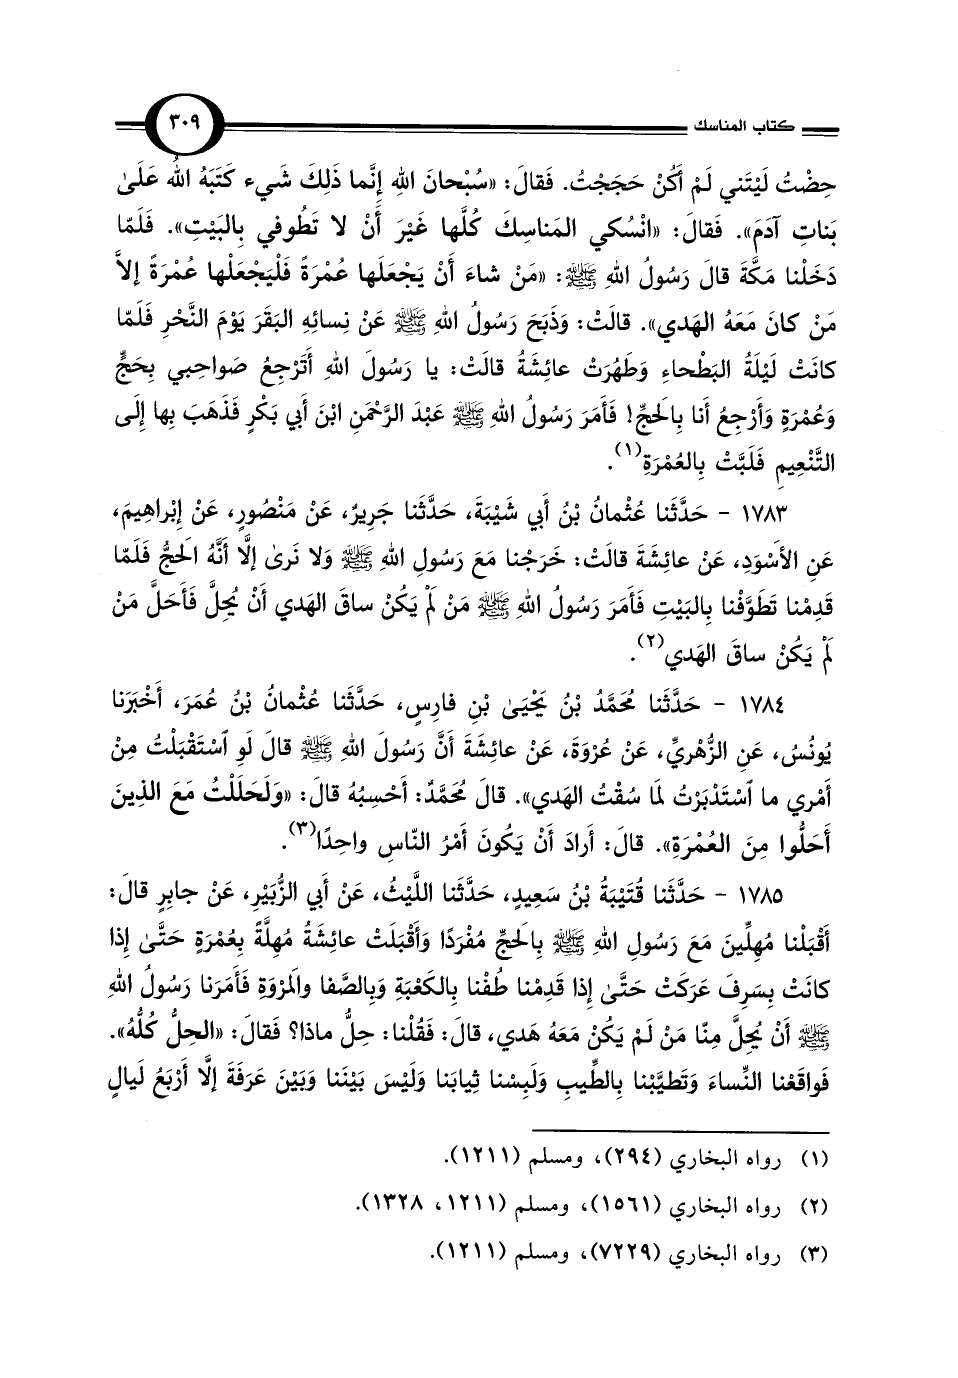 كتاب المناسك ٣٠٩
حِضْتُ لَيْتَني لَمْ أَكُنْ حَجَجْتُ. فَقالَ: «سُبْحانَ اللهِ إِنَّما ذَلِكَ شَيء كَتَبَهُ اللهُ عَلَىٰ
بَناتِ آدَمَ». فَقالَ: «انْسُكي المَناسِكَ كُلَّها غَيْرَ أَنْ لا تَطُوفي بِالبَيْتِ». فَلَمّا
دَخَلْنا مَكَّةَ قالَ رَسُولُ اللهِ ﷺ: «مَنْ شاءَ أَنْ يَجْعَلَها عُمْرَةً فَلْيَجْعَلْها عُمْرَةً إلاَّ
مَنْ كانَ مَعَهُ الهَدي». قالَتْ: وَذَبَحَ رَسُولُ اللهِ ﷺ عَنْ نِسائِهِ البَقَرَ يَوْمَ النَّحْرِ فَلَمّا
كانَتْ لَيْلَةُ البَطْحاءِ وَطَهُرَتْ عائِشَةُ قالَتْ: يا رَسُولَ اللهِ أَتَرْجِعُ صَواحِبي بِحَجٍّ
وَعُمْرَةٍ وَأَرْجِعُ أَنا بِالَحجِّ! فَأَمَرَ رَسُولُ اللهِ ﷺ عَبْدَ الرَّحْمَنِ ابْنَ أَبي بَكْرٍ فَذَهَبَ بِها إِلَى
التَّنْعِيمِ فَلَبَّتْ بِالعُمْرَةِ(١).
١٧٨٣ - حَدَّثَنا عُثْمانُ بْنُ أَبي شَيْبَةَ، حَدَّثَنا جَرِيرٌ، عَنْ مَنْصُورٍ، عَنْ إِبْراهِيمَ،
عَنِ الأَسْوَدِ، عَنْ عائِشَةَ قالَتْ: خَرَجْنا مَعَ رَسُولِ اللهِ ﷺ وَلا نَرىٰ إِلَّا أَنَّهُ الَحجُّ فَلَمّا
قَدِمْنا تَطَوَّفْنا بِالبَيْتِ فَأَمَرَ رَسُولُ اللهِ ﷺ مَنْ لَمْ يَكُنْ ساقَ الهَدي أَنْ يُحِلَّ فَأَحَلَّ مَنْ
لَمْ يَكُنْ ساقَ الهَدي(٢).
١٧٨٤ - حَدَّثَنا مُحَمَّدُ بْنُ يَحْيَىٰ بْنِ فارِسٍ، حَدَّثَنا عُثْمانُ بْنُ عُمَرَ، أَخْبَرَنا
يُونُسُ، عَنِ الزُّهْريِّ، عَنْ عُرْوَةَ، عَنْ عائِشَةَ أَنَّ رَسُولَ اللهِ ﷺ قالَ لَو ٱسْتَقْبَلْتُ مِنْ
أَمْري ما ٱسْتَدْبَرْتُ لَما سُقْتُ الهَدي». قالَ مُحَمَّدٌ: أَحْسِبُهُ قالَ: «وَلَحَلَلْتُ مَعَ الذِينَ
أَحَلُّوا مِنَ العُمْرَةِ». قالَ: أَرادَ أَنْ يَكُونَ أَمْرُ النّاسِ واحِدًا(٣).
١٧٨٥ - حَدَّثَنا قُتَيْبَةُ بْنُ سَعِيدٍ، حَدَّثَنا اللَّيْثُ، عَنْ أَبي الزُّبَيْرِ، عَنْ جابِرٍ قالَ:
أَقْبَلْنا مُهِلِّينَ مَعَ رَسُولِ اللهِ ﷺ بِالَحجِّ مُفْرَدًا وَأَقْبَلَتْ عائِشَةُ مُهِلَّةً بِعُمْرَةٍ حَتَّىٰ إِذا
كانَتْ بِسَرِفَ عَرَكَتْ حَتَّىٰ إِذا قَدِمْنا طُفْنا بِالكَعْبَةِ وَبِالصَّفا والمَرْوَةِ فَأَمَرَنا رَسُولُ اللهِ
ﷺ أَنْ يُحِلَّ مِنّا مَنْ لَمْ يَكُنْ مَعَهُ هَدي، قالَ: فَقُلْنا: حِلُّ ماذا؟ فَقالَ: «الحِلُّ كُلُّهُ».
فَواقَعْنا النِّساءَ وَتَطَيَّبْنا بِالطِّيبِ وَلَبِسْنا ثِيابَنا وَلَيْسَ بَيْنَنا وَبَيْنَ عَرَفَةَ إِلَّا أَرْبَعُ لَيالٍ
(١) رواه البخاري (٢٩٤)، ومسلم (١٢١١).
(٢) رواه البخاري (١٥٦١)، ومسلم (١٢١١، ١٣٢٨).
(٣) رواه البخاري (٧٢٢٩)، ومسلم (١٢١١).